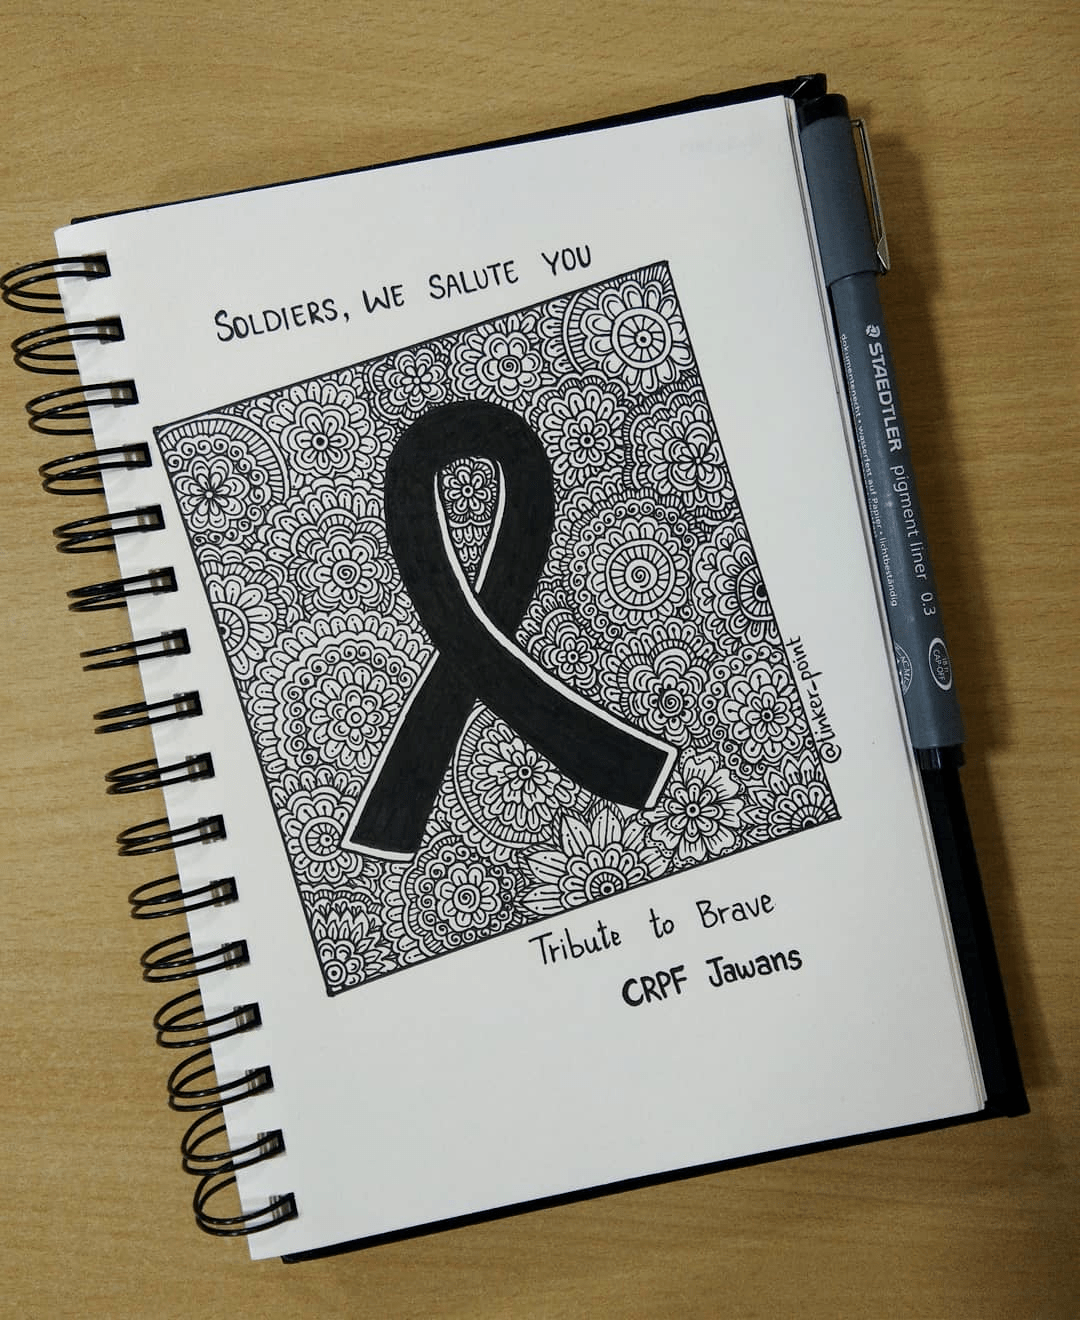 SOLDIERS, WE SALUTE YOU
@inker_point
Tribute to Brave
CRPF Jawans
STAEDTLER
pigment liner 0.3
dokumentenecht • wasserfest auf Papier • lichtbeständig
CAP-OFF